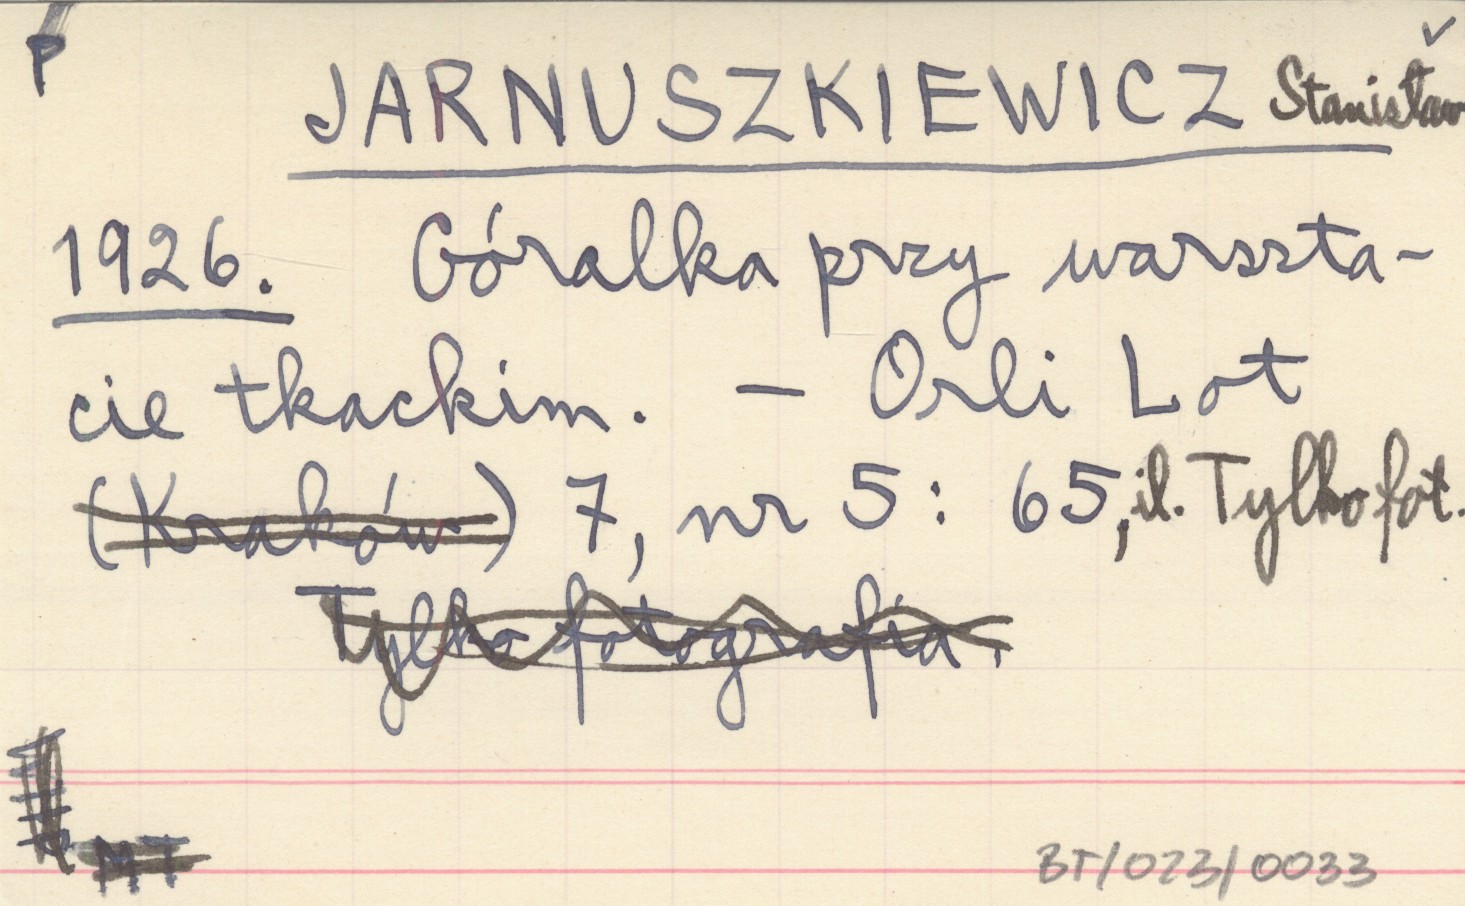 P
JARNUSZKIEWICZ Stanisław
1926. Góralka przy warszta-
cie tkackim. – Orli Lot
(Kraków) 7, nr 5: 65, il. Tylko fot.
Tylko fotografia.
MT
BT/023/0033